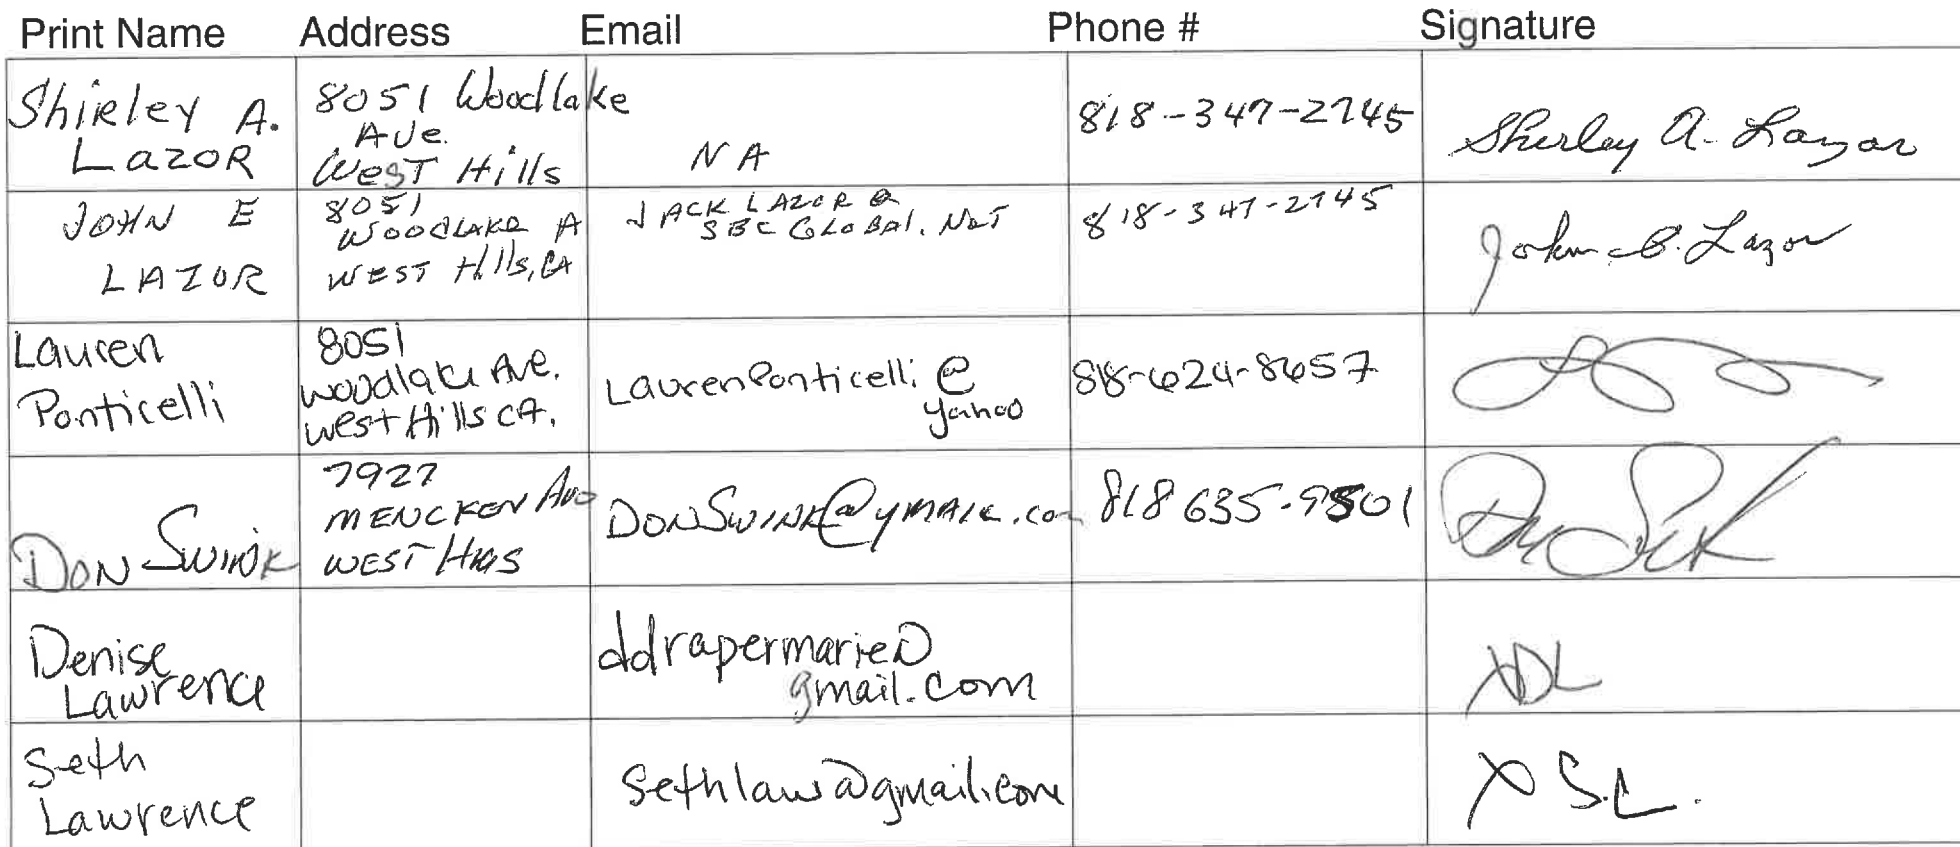 Print Name Address Email Phone # Signature
Shirley A.
Lazor
8051 Woodlake
Ave.
West Hills
NA
818-347-2745
Shirley A. Lazor
JOHN E
LAZOR
8051
WOODLAKE A
WEST Hills, CA
JACK LAZOR @
SBC GLOBAL. NET
818-347-2745
John E. Lazor
Lauren
Ponticelli
8051
woodlake Ave.
west Hills CA.
LaurenPonticelli @
yahoo
818-624-8657
DON SWINK
7927
MENCKEN Ave
WEST HILLS
DONSWINK@YMAIL.com
818 635-9501
Denise
Lawrence
ddrapermarie@
gmail.com
XDL
Seth
Lawrence
Sethlaw@gmail.com
X S.L.